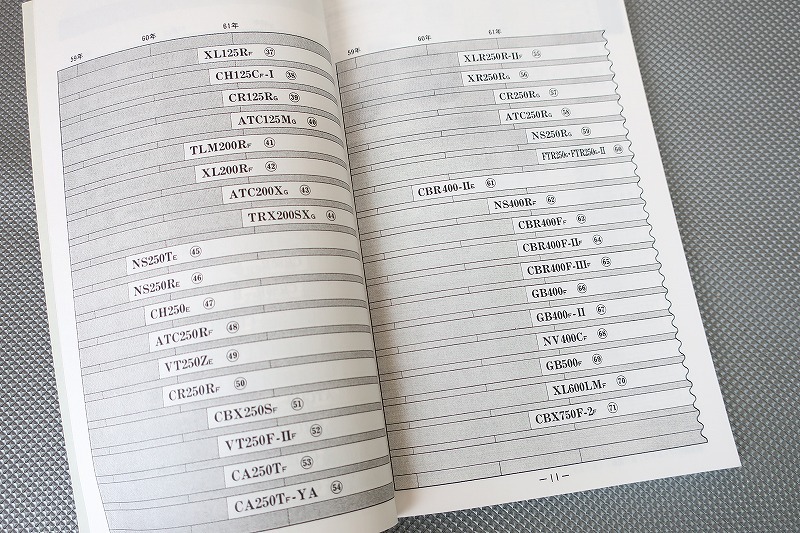 59年 60年 61年
XL125RF ㊲
CH125CF-I ㊳
CR125RG ㊴
ATC125MG ㊵
TLM200RF ㊶
XL200RF ㊷
ATC200XG ㊸
TRX200SXG ㊹
NS250TE ㊺
NS250RE ㊻
CH250E ㊼
ATC250RF ㊽
VT250ZE ㊾
CR250RF ㊿
CBX250SF 51
VT250F-IIF 52
CA250TF 53
CA250TF-YA 54
59年 60年 61年
XLR250R-IIF 55
XR250RG 56
CR250RG 57
ATC250RG 58
NS250RG 59
FTR250G・FTR250G-II 60
CBR400-IIE 61
NS400RF 62
CBR400FF 63
CBR400F-IIF 64
CBR400F-IIIF 65
GB400F 66
GB400F-II 67
NV400CF 68
GB500F 69
XL600LMF 70
CBX750F-2F 71
-11-